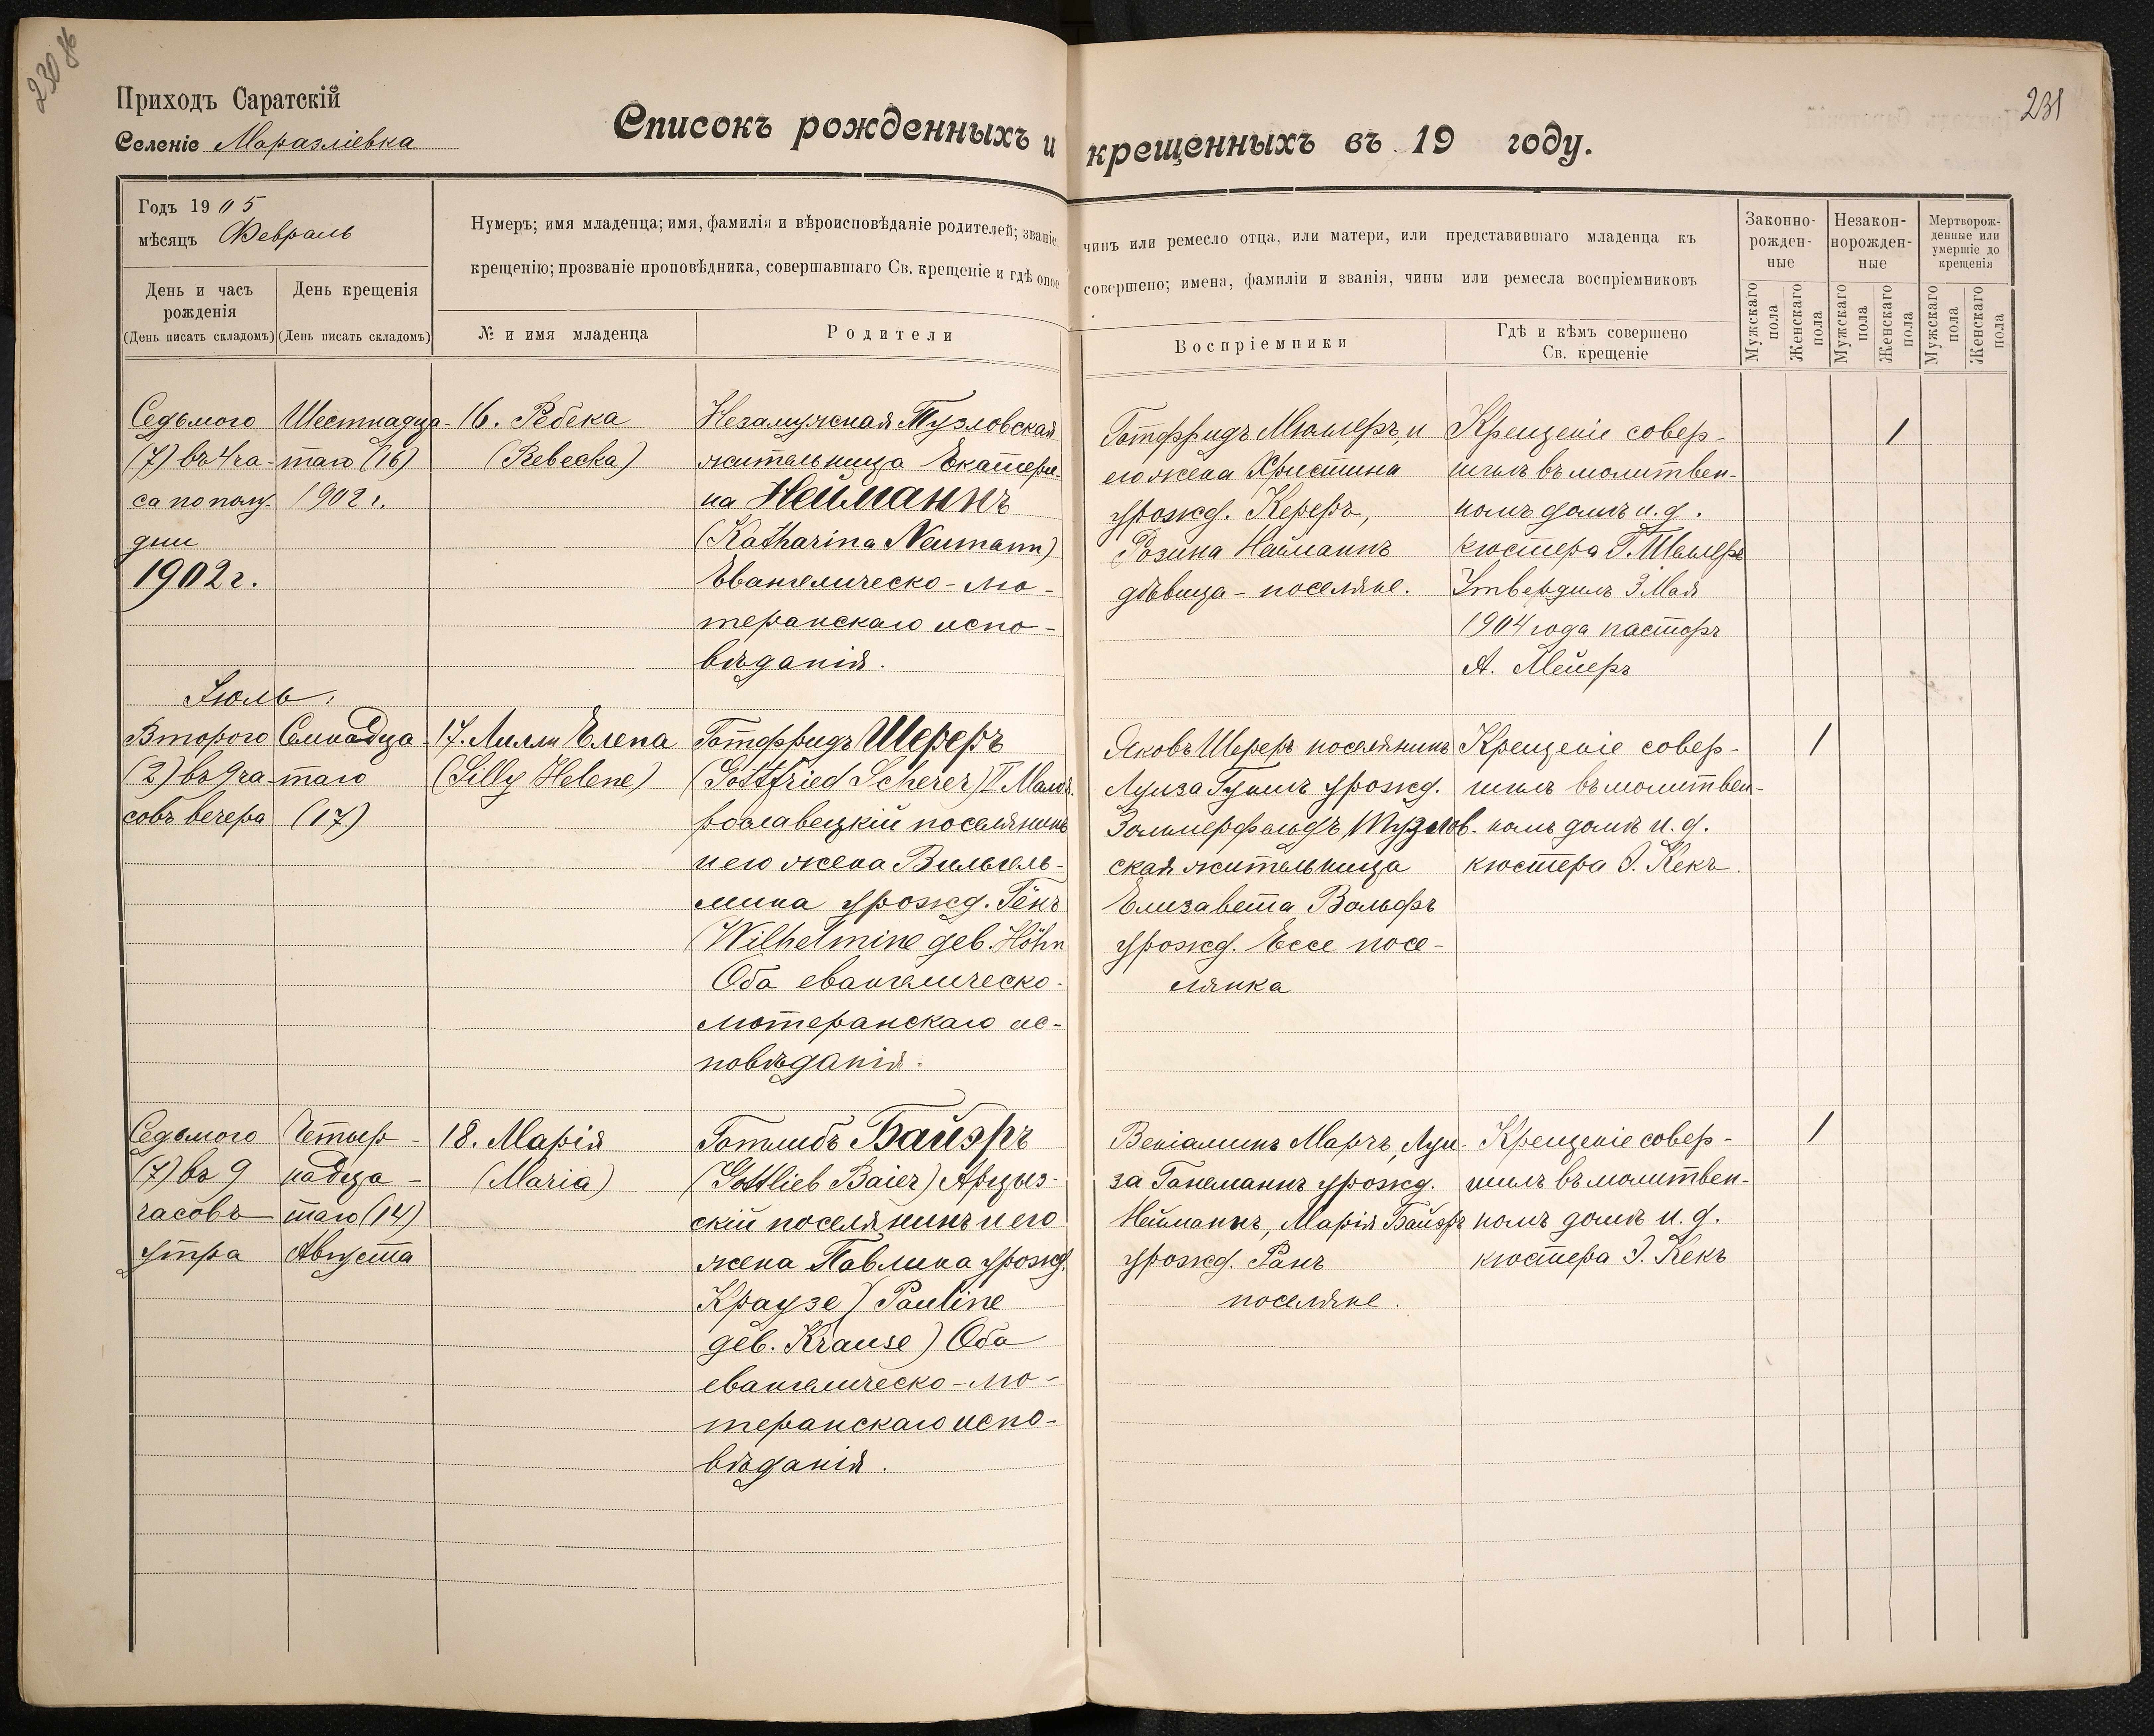 230 об
231
Приходъ Саратскій
Селеніе Маразліевка
Списокъ рожденныхъ и крещенныхъ въ 19 году.
Годъ 1905
мѣсяцъ Февраль
День и часъ
рожденія
(День писать складомъ)
День крещенія
(День писать складомъ)
Нумеръ; имя младенца; имя, фамилія и вѣроисповѣданіе родителей; званіе,
чинъ или ремесло отца, или матери, или представившаго младенца къ
крещенію; прозваніе проповѣдника, совершавшаго Св. крещеніе и гдѣ оное
совершено; имена, фамиліи и званія, чины или ремесла воспріемниковъ
№ и имя младенца
Родители
Воспріемники
Гдѣ и кѣмъ совершено
Св. крещеніе
Законно-
рожден-
ные
Незакон-
норожден-
ные
Мертворож-
денные или
умершіе до
крещенія
Мужскаго
пола
Женскаго
пола
Мужскаго
пола
Женскаго
пола
Мужскаго
пола
Женскаго
пола
Седьмого
(7) въ 4 ча-
са по полу-
дни
1902 г.
Шестнадца-
таго (16)
1902 г.
16. Ребека
(Rebecka)
Незамужная Тузловская
жительница Екатери-
на Нейманнъ
(Katharina Neumann)
Евангелическо-лю-
теранскаго испо-
вѣданія.
Готфридъ Мюллеръ, и
его жена Христина
урожд. Кереръ,
Розина Нейманнъ
дѣвица - поселяне.
Крещеніе совер-
шилъ въ молитвен-
номъ домѣ и. д.
кюстера Г. Шеллеръ
Утвердилъ 3 Мая
1904 года пасторъ
А. Мейеръ
1
Іюль:
Второго
(2) въ 9 ча-
совъ вечера
Семнадца-
таго
(17)
17. Лилли Елена
(Lilly Helene)
Готфридъ Шереръ
(Gottfried Scherer) II Малоя-
рославецкій поселянинъ
и его жена Вильгель-
мина урожд. Гёнъ
(Wilhelmine geb. Höhn
Оба евангелическо-
лютеранскаго ис-
повѣданія.
Яковъ Шереръ поселянинъ
Луиза Гуншъ урожд.
Золмерфельдъ, Тузлов-
ская жительница
Елизавета Вольфъ
урожд. Ессе посе-
лянка
Крещеніе совер-
шилъ въ молитвен-
номъ домѣ и. д.
кюстера І. Кекъ.
1
Седьмого
(7) въ 9
часовъ
утра
Четыр-
надца-
таго (14)
Августа
18. Марія
(Maria)
Готлибъ Байэръ
(Gottlieb Baier) Арциз-
скій поселянинъ и его
жена Павлина урожд.
Краузе (Pauline
geb. Krause) Оба
евангелическо-лю-
теранскаго испо-
вѣданія.
Веніаминъ Марчъ, Луи-
за Ганеманнъ урожд.
Нейманнъ, Марія Байэръ
урожд. Ранъ
поселяне.
Крещеніе совер-
шилъ въ молитвен-
номъ домѣ и. д.
кюстера І. Кекъ
1